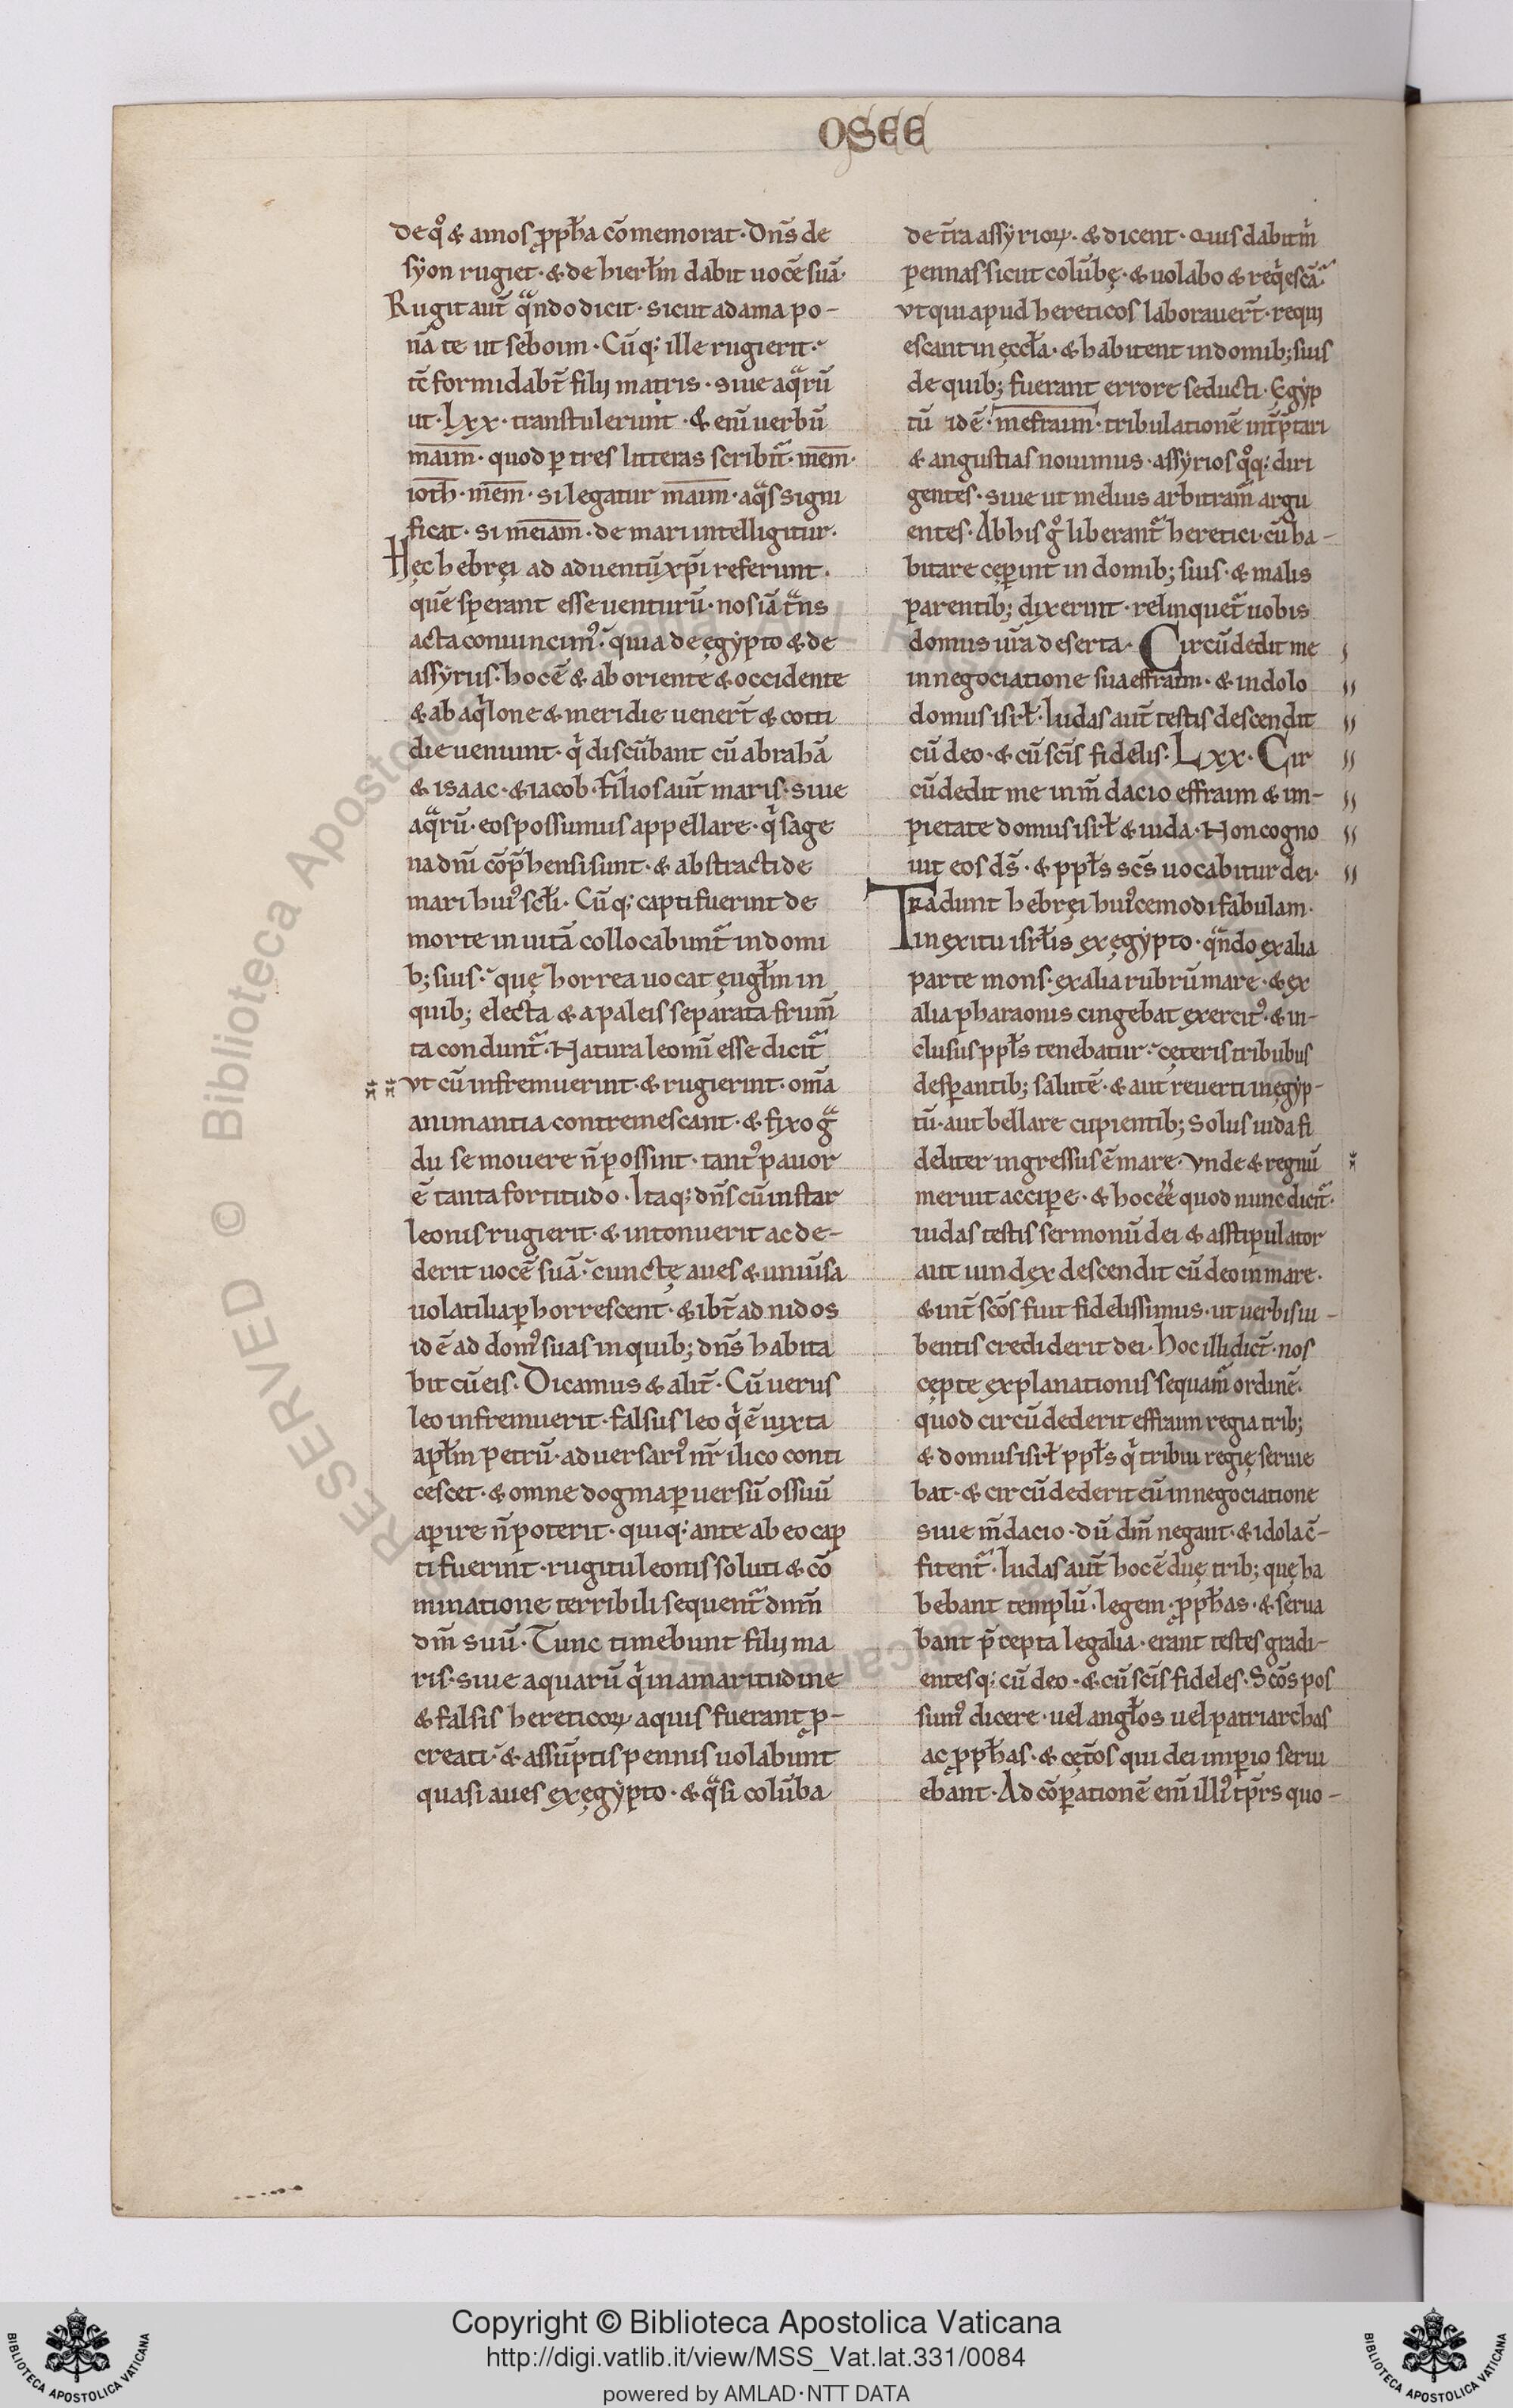 OSEE
de qͦ & amos ꝓph̄a cōmemorat· Dn̄s de
syon rugiet· & de hierl̄m dabit uocē suā·
Rugit aut̄ qᷓndo dicit· sicut adama po-
nā te ut seboim· Cūq; ille rugierit·
tc̄ formidabt̄ filij matris· siue aqᷓrū
ut· Lxx· transtulerunt· & eni̅ uerbū
maim̅· quod ꝑ tres litteras scribit᷑· mem̅·
ioth̅· mem̅· si legatur maim̅· aqᷓs signi
ficat· si meiam̅· de mari intelligitur·
Hęc hebręi ad aduentū xp̄i referunt·
quē sperant esse uenturū· nos iā tᷓns
acta conuincimꝰ· quia de ęgypto & de
assyrijs· hoc ē & ab oriente & occidente
& ab aqͥlone & meridie uenert̄ & cotti
die ueniunt· qͥ discūbant cū abrahā
& isaac· & iacob· Filios aut̄ maris· siue
aqᷓrū· eos possumus appellare· qͥ sage
na dnī cōp̄hensi sunt· & abstracti de
mari huiꝰ scl̄i· Cūq; capti fuerint de
morte in uitā collocabunt᷑ in domi
b; suis· quę horrea uocat ęugl̄m in
quib; electa & a paleis separata frum̄
ta condunt᷑· Natura leonū esse dicit᷑
vt cū infremuerint· & rugierint· om̄a
animantia contremescant· & fixo gᷓ
du se mouere n̄ possint· tantꝰ pauor
ē tanta fortitudo· Itaq; dn̄s cū instar
leonis rugierit· & intonuerit ac de-
derit uocē suā· cunctę aues & uniūsa
uolatilia ꝑhorrescent· & ibt̄ ad nidos
id ē ad domꝰ suas in quib; dn̄s habita
bit cū eis· Dicamus & alit̄· Cū uerus
leo infremuerit· falsus leo qͥ ē iuxta
apl̄m petrū· aduersariꝰ nr̄ ilico conti
cescet· & omne dogma ꝑuersū os suū
aꝑire n̄ poterit· quiq; ante ab eo cap
ti fuerint· rugitu leonis soluti & cō
minatione terribili sequent᷑ dnm̄
dm̄ suū· Tunc timebunt filij ma
ris· siue aquarū qͥ in amaritudine
& falsis hereticoꝝ aquis fuerant p-
creati· & assūptis pennis uolabunt
quasi aues ex ęgypto· & qᷓsi colūba
de tr̄a assyrioꝝ· & dicent· Quis dabit m̄
pennas sicut colūbę· & uolabo & reqͥescā·
vt qui apud hereticos laborauert̄· requi
escant in ęccl̄a· & habitent in domib; suis
de quib; fuerant errore seducti· Ęgyp
tū id ē· mefraim̅· tribulationē int̄p̄tari
& angustias nouimus· assyrios qͦq; diri
gentes· siue ut melius arbitram̄ argu
entes· Ab his gͦ liberant᷑ heretici· cū ha-
bitare cęꝑint in domib; suis· & malis
parentib; dixerint· relinquet᷑ uobis
domus ur̄a deserta· Circūdedit me
in negociatione sua effraim· & in dolo
domus isrl̄· Iudas aut̄ testis descendit
cū deo· & cū scīs fidelis· Lxx· Cir
cūdedit me in m̄dacio effraim & im-
pietate domus isrl̄ & iuda· Non cogno
uit eos ds̄· & ppl̄s scs̄ uocabitur dei·
Tradunt hebręi huiꝰcemodi fabulam·
in exitu isrl̄is ex ęgypto· qᷓndo ex alia
parte mons· ex alia rubrū mare· & ex
alia pharaonis cingebat exercitꝰ· & in-
clusus ppl̄s tenebatur· cęteris tribubus
desꝑantib; salutē· & aut reuerti in ęgyp-
tū· aut bellare cupientib; solus iuda fi
deliter ingressus ē mare· Vnde & regnū
meruit acciꝑe· & hoc ēē quod nunc dicit᷑·
iudas testis sermonū dei & asstipulator
aut uindex descendit cū deo in mare·
& int̄ scōs fuit fidelissimus· ut uerbis iu-
bentis crediderit dei· Hoc illi dict̄· nos
cępte explanationis sequam̄ ordinē·
quod circūdederit effraim regia trib;
& domus isrl̄ ppl̄s qͥ tribui regię serue
bat· & circūdederit eū in negociatione
siue m̄dacio· dū dm̄ negant· & idola c̄-
fitent᷑· Iudas aut̄ hoc ē duę trib; quę ha
bebant templū· legem· ꝓph̄as· & serua
bant p̄cepta legalia· erant testes gradi-
entesq; cū deo· & cū scīs fideles· Scōs pos
sumꝰ dicere· uel angl̄os uel patriarchas
ac ꝓph̄as· & cęt̄os qui dei imꝑio serui
ebant· Ad cōꝑationē eni̅ illiꝰ tp̄rs quo-
RESERVED © Biblioteca Apostolica Vaticana
Copyright © Biblioteca Apostolica Vaticana
http://digi.vatlib.it/view/MSS_Vat.lat.331/0084
powered by AMLAD·NTT DATA
BIBLIOTECA APOSTOLICA VATICANA
BIBLIOTECA APOSTOLICA VATICANA